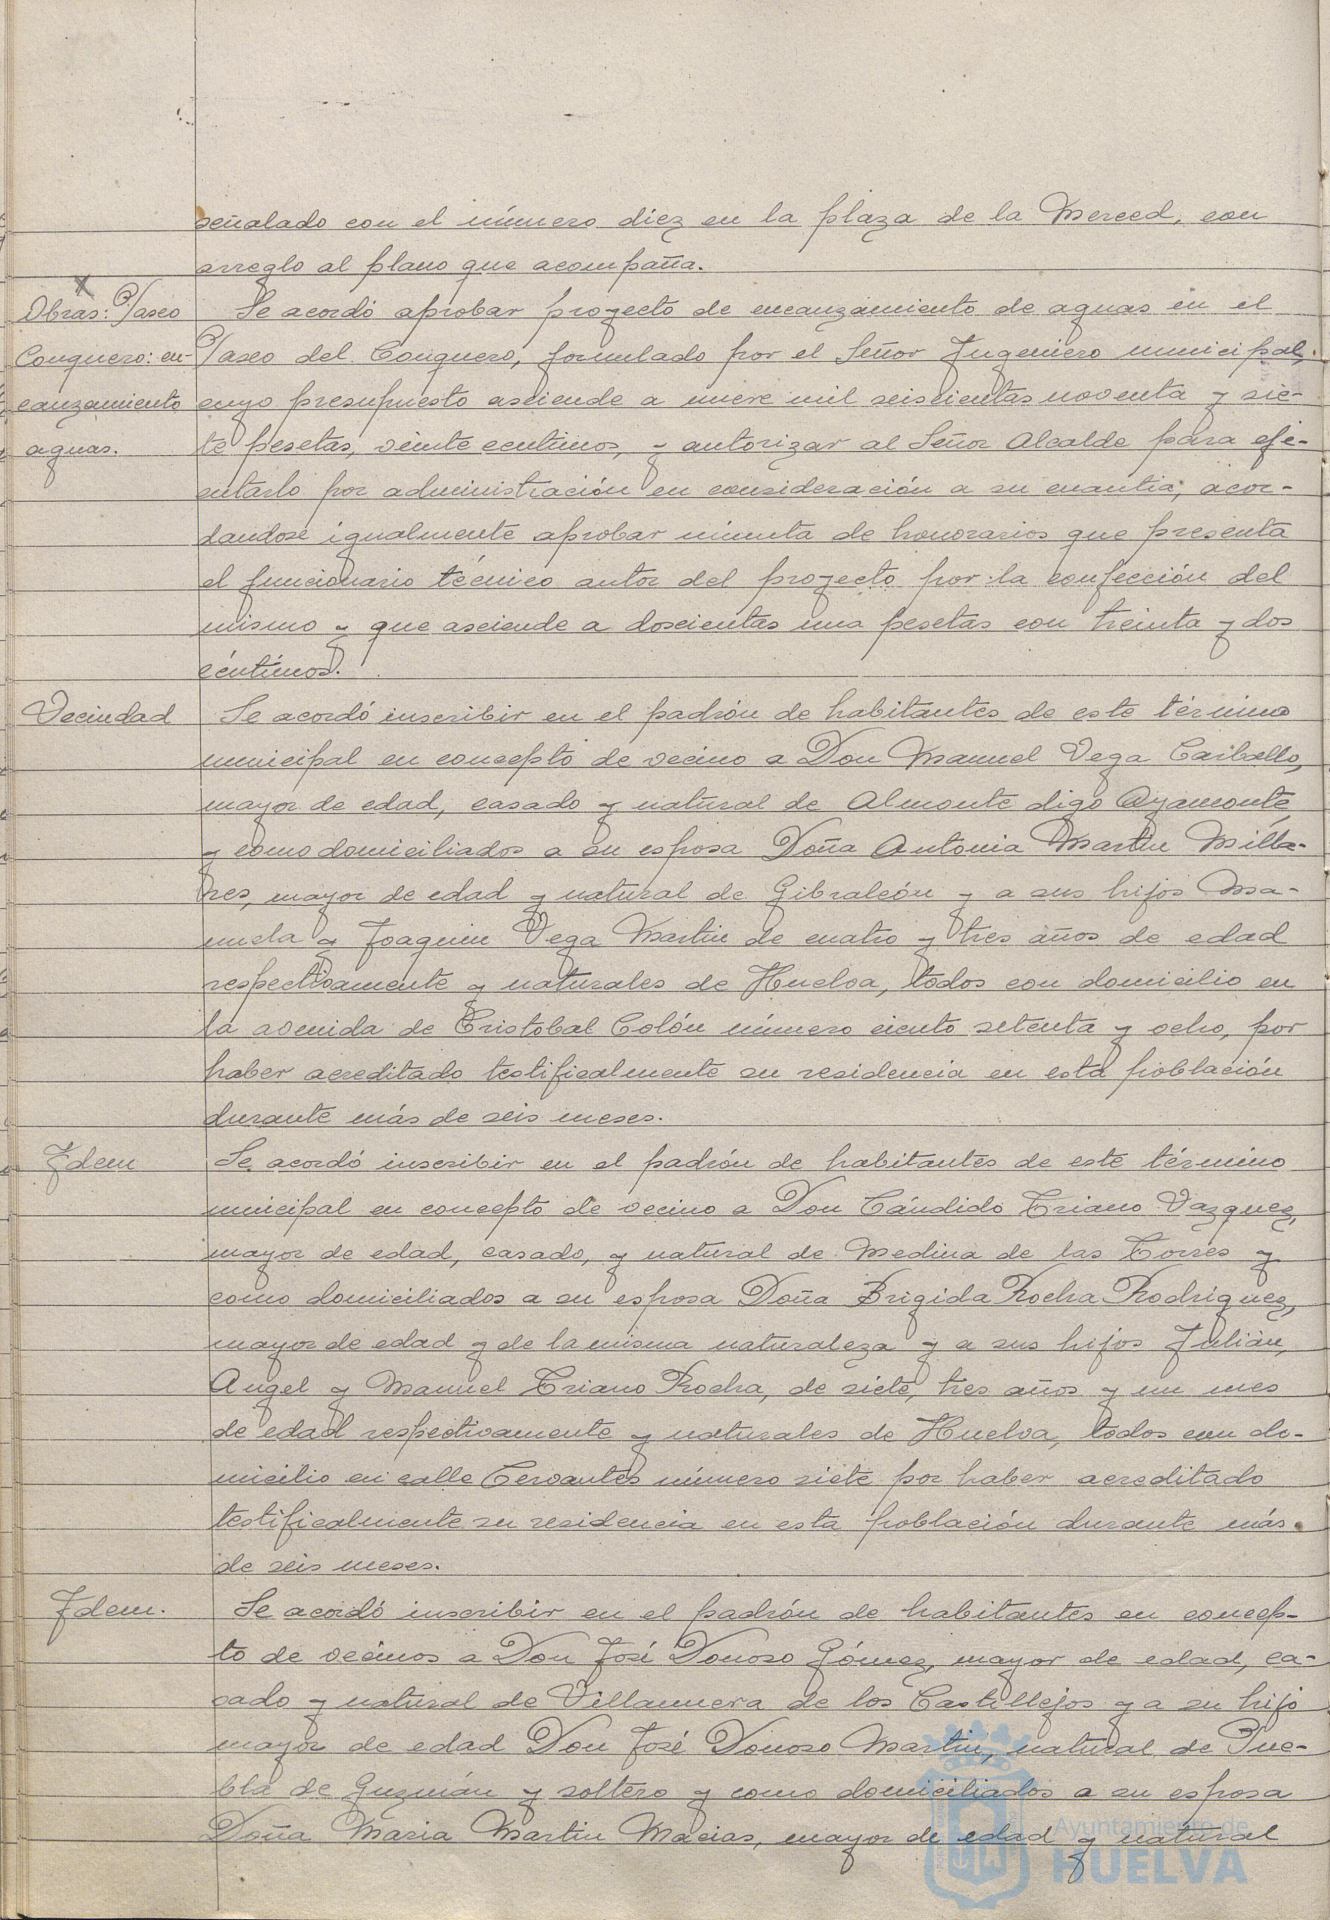 señalado con el número diez en la plaza de la Merced, con
arreglo al plano que acompaña.
Obras: Paseo
Conquero: en-
cauzamiento
aguas.
Se acordó aprobar proyecto de encauzamiento de aguas en el
Paseo del Conquero, formulado por el Señor Ingeniero municipal,
cuyo presupuesto asciende a nueve mil seiscientas noventa y sie-
te pesetas, veinte centimos, y autorizar al Señor Alcalde para eje-
cutarlo por administración en consideración a su cuantia, acor-
dandose igualmente aprobar minuta de honorarios que presenta
el funcionario técnico autor del proyecto por la confección del
mismo y que asciende a doscientas una pesetas con treinta y dos
céntimos.
Vecindad
Se acordó inscribir en el padrón de habitantes de este término
municipal en concepto de vecino a Don Manuel Vega Carballo,
mayor de edad, casado y natural de Almonte digo Ayamonte
y como domiciliados a su esposa Doña Antonia Martin Milla-
res, mayor de edad y natural de Gibraleón y a sus hijos Ma-
nuela y Joaquin Vega Martin de cuatro y tres años de edad
respectivamente y naturales de Huelva, todos con domicilio en
la avenida de Cristobal Colón número ciento setenta y ocho, por
haber acreditado testificalmente su residencia en esta población
durante más de seis meses.
Idem
Se acordó inscribir en el padrón de habitantes de este término
municipal en concepto de vecino a Don Cándido Triano Vazquez,
mayor de edad, casado, y natural de Medina de las Torres y
como domiciliados a su esposa Doña Brigida Rocha Rodriguez,
mayor de edad y de la misma naturaleza y a sus hijos Julián,
Angel y Manuel Triano Rocha, de siete, tres años y un mes
de edad respectivamente y naturales de Huelva, todos con do-
micilio en calle Cervantes número siete por haber acreditado
testificalmente su residencia en esta población durante más
de seis meses.
Idem.
Se acordó inscribir en el padrón de habitantes en concep-
to de vecinos a Don José Donoso Gómez, mayor de edad, ca-
sado y natural de Villanueva de los Castillejos y a su hijo
mayor de edad Don José Donoso Martin, natural de Pue-
bla de Guzmán y soltero y como domiciliados a su esposa
Doña Maria Martin Macias, mayor de edad y natural
Ayuntamiento de
HUELVA